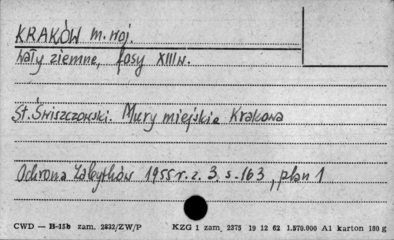 KRAKÓW m. woj.
wały ziemne, fosy XIII w.
St. Świszczowski. Mury miejskie Krakowa
Ochrona Zabytków 1955 r. z. 3. s. 163, plan 1
CWD — B-15b zam. 2832/ZW/P KZG 1 zam. 2375 19 12 62 1.870.000 A1 karton 180 g